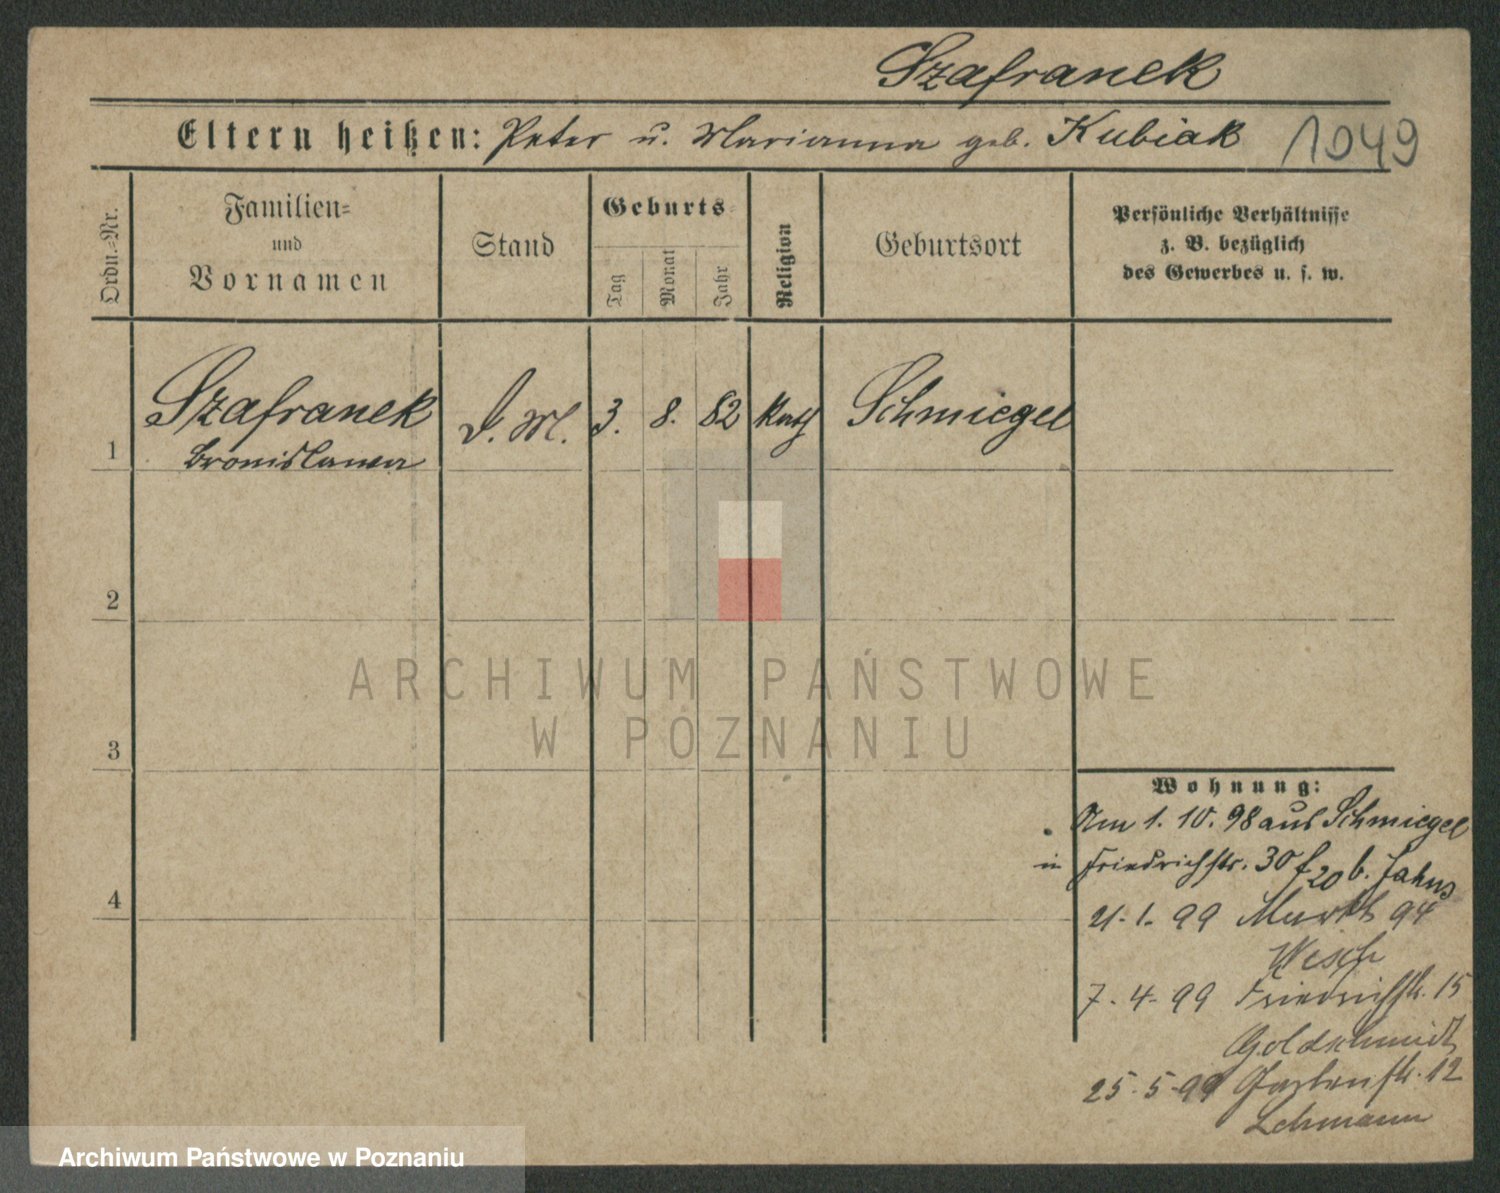 Szafranek
Eltern heißen: Peter u. Marianna geb. Kubiak 1049
Ordn.-Nr.
Familien-
und
Vornamen
Stand
Geburts-
Tag
Monat
Jahr
Religion
Geburtsort
Persönliche Verhältnisse
z. B. bezüglich
des Gewerbes u. s. w.
1 Szafranek D. M. 3. 8. 82 kath Schmiegel
Bronislawa
2
ARCHIWUM PAŃSTWOWE
W POZNANIU
3
Wohnung:
Am 1. 10. 98 aus Schmiegel
in Friedrichstr. 30 b. Jahns
4
21. 1. 99 Markt 94
7. 4. 99 Friedrichstr. 15
Goldschmidt
25. 5. 99 Gartenstr. 12
Lehmann
Archiwum Państwowe w Poznaniu